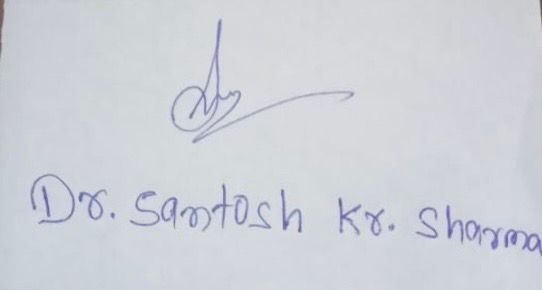 Dr. Santosh Kr. Sharma